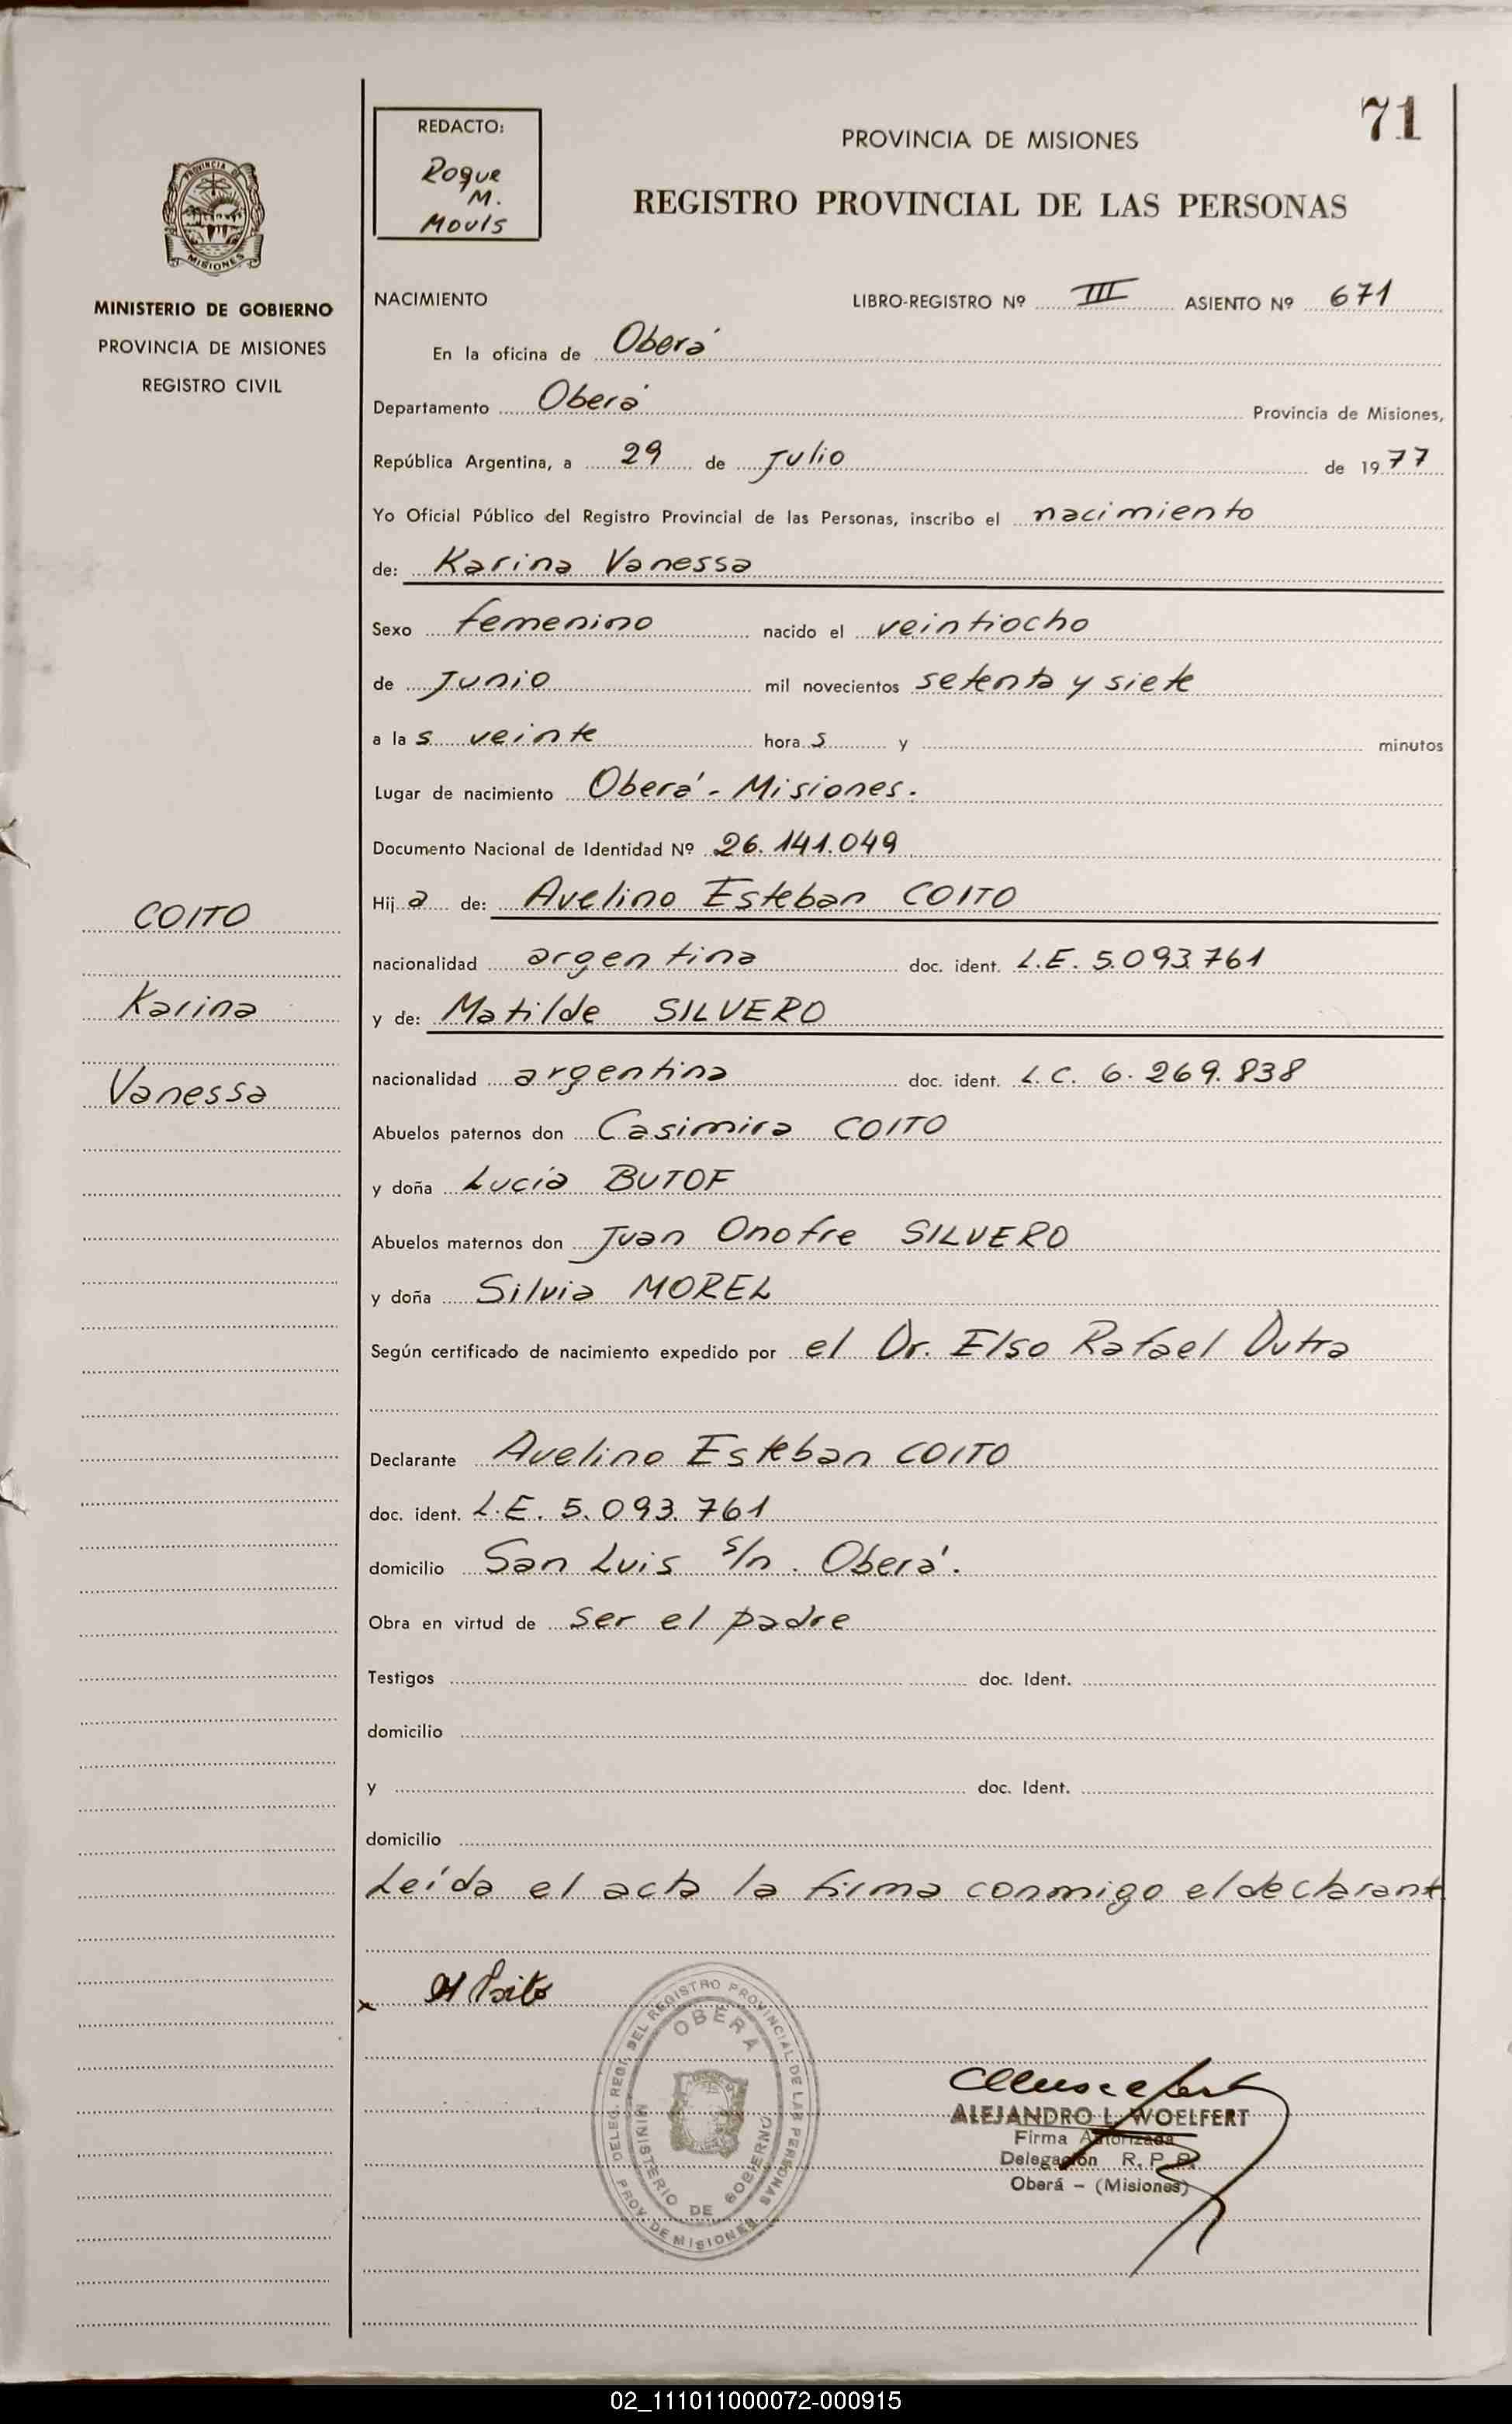 71
REDACTO:
Roque
M.
Mouls
PROVINCIA DE MISIONES
REGISTRO PROVINCIAL DE LAS PERSONAS
PROVINCIA DE
MISIONES
MINISTERIO DE GOBIERNO
PROVINCIA DE MISIONES
REGISTRO CIVIL
NACIMIENTO LIBRO-REGISTRO Nº III ASIENTO Nº 671
En la oficina de Oberá
Departamento Oberá Provincia de Misiones,
República Argentina, a 29 de Julio de 1977
Yo Oficial Público del Registro Provincial de las Personas, inscribo el nacimiento
de: Karina Vanessa
Sexo femenino nacido el veintiocho
de Junio mil novecientos setenta y siete
a las veinte horas y minutos
Lugar de nacimiento Oberá - Misiones.
Documento Nacional de Identidad Nº 26.141.049
Hija de: Avelino Esteban COITO
nacionalidad argentina doc. ident. L.E. 5.093.761
y de: Matilde SILVERO
nacionalidad argentina doc. ident. L.C. 6.269.838
Abuelos paternos don Casimira COITO
y doña Lucía BUTOF
Abuelos maternos don Juan Onofre SILVERO
y doña Silvia MOREL
Según certificado de nacimiento expedido por el Dr. Elso Rafael Dutra
Declarante Avelino Esteban COITO
doc. ident. L.E. 5.093.761
domicilio San Luis s/n. Oberá.
Obra en virtud de ser el padre
Testigos doc. Ident.
domicilio
y doc. Ident.
domicilio
Leída el acta la firma conmigo el declarant
COITO
Karina
Vanessa
x
DELEG. REGI. DEL REGISTRO PROVINCIAL DE LAS PERSONAS
PROV. DE MISIONES
OBERA
MINISTERIO DE GOBIERNO
ALEJANDRO L. WOELFERT
Firma Autorizada
Delegación R. P. P.
Oberá - (Misiones)
02_111011000072-000915